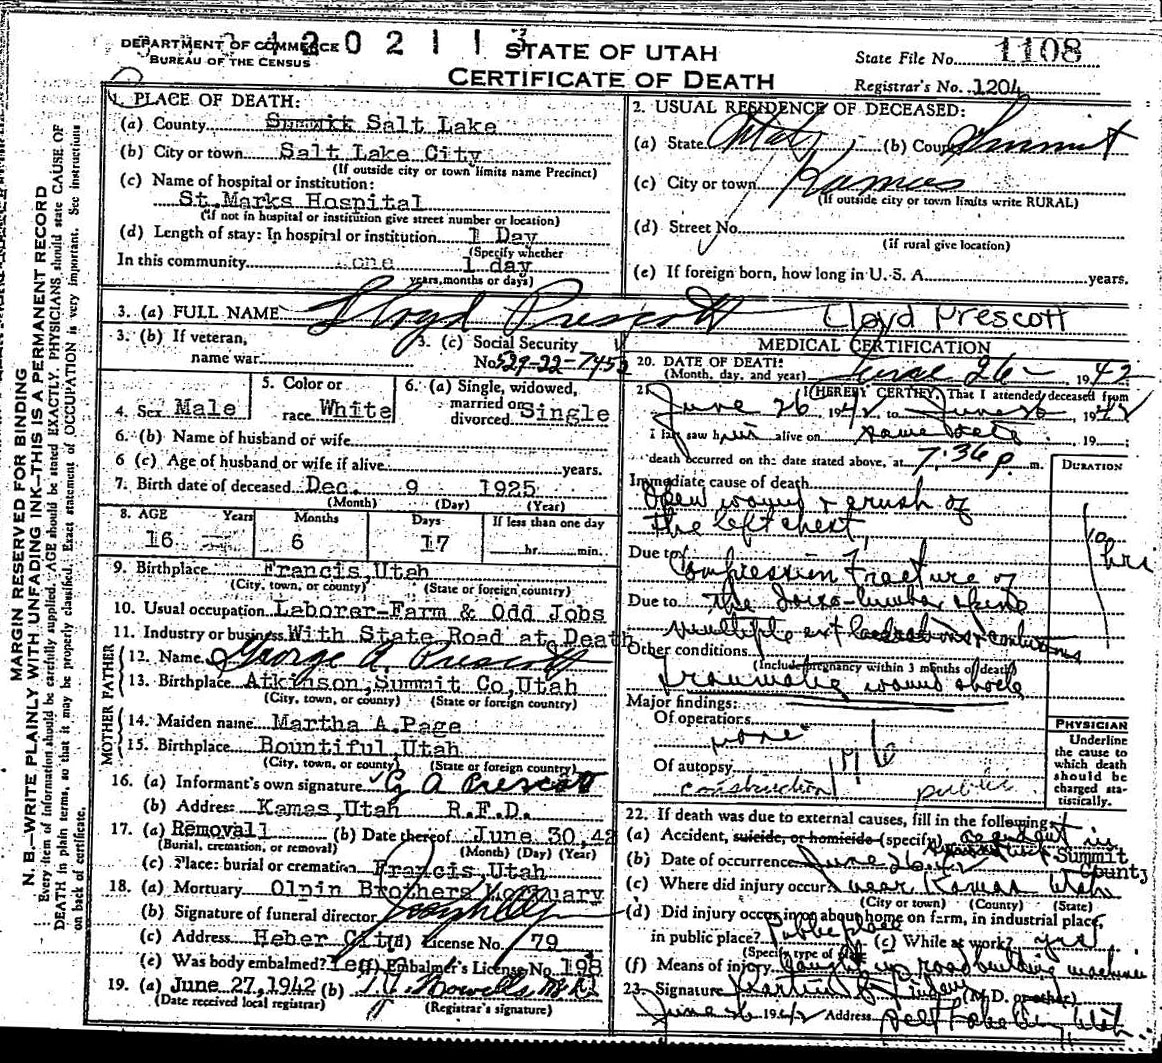 DEPARTMENT OF COMMERCE
BUREAU OF THE CENSUS
4202113
STATE OF UTAH
CERTIFICATE OF DEATH
State File No. 1108
Registrar's No. 1204
MARGIN RESERVED FOR BINDING
N. B.—WRITE PLAINLY WITH UNFADING INK—THIS IS A PERMANENT RECORD
Every item of information should be carefully supplied. AGE should be stated EXACTLY. PHYSICIANS should state CAUSE OF
DEATH in plain terms, so that it may be properly classified. Exact statement of OCCUPATION is very important. See instructions
on back of certificate.
1. PLACE OF DEATH:
(a) County Summit Salt Lake
(b) City or town Salt Lake City
(If outside city or town limits name Precinct)
(c) Name of hospital or institution:
St.Marks Hospital
(If not in hospital or institution give street number or location)
(d) Length of stay: In hospital or institution 1 Day
(Specify whether
In this community one 1 day
years, months or days)
2. USUAL RESIDENCE OF DECEASED:
(a) State Utah (b) County Summit
(c) City or town Kamas
(If outside city or town limits write RURAL)
(d) Street No.
(if rural give location)
(e) If foreign born, how long in U. S. A. years.
3. (a) FULL NAME Lloyd Prescott Lloyd Prescott
3. (b) If veteran,
name war
3. (c) Social Security
No. 529-22-7453
4. Sex Male
5. Color or
race White
6. (a) Single, widowed,
married or
divorced Single
6. (b) Name of husband or wife
6 (c) Age of husband or wife if alive years.
7. Birth date of deceased Dec. 9 1925
(Month) (Day) (Year)
8. AGE Years Months Days If less than one day
16 6 17 hr. min.
9. Birthplace Francis,Utah
(City, town, or county) (State or foreign country)
10. Usual occupation Laborer-Farm & Odd Jobs
11. Industry or business With State Road at Death
FATHER
12. Name George A. Prescott
13. Birthplace Atkinson,Summit Co,Utah
(City, town, or county) (State or foreign country)
MOTHER
14. Maiden name Martha A.Page
15. Birthplace Bountiful,Utah
(City, town, or county) (State or foreign country)
16. (a) Informant's own signature G A Prescott
(b) Address Kamas,Utah R.F.D.
17. (a) Removall (b) Date thereof June 30,42
(Burial, cremation, or removal) (Month) (Day) (Year)
(c) Place: burial or cremation Francis,Utah
18. (a) Mortuary Olpin Brothers Mortuary
(b) Signature of funeral director
(c) Address Heber City (d) License No. 79
(e) Was body embalmed? Yes (f) Embalmer's License No. 198
19. (a) June 27,1942 (b)
(Date received local registrar) (Registrar's signature)
MEDICAL CERTIFICATION
20. DATE OF DEATH: June 26- 1942
(Month, day, and year)
21. I HEREBY CERTIFY, That I attended deceased from
June 26 1942, to June 26, 1942
I last saw him alive on same date, 19
death occurred on the date stated above, at 7:36 p. m.
DURATION
Immediate cause of death
Open wound & crush of
the left chest,
10 hrs
Due to Compression Fracture of
Due to the dorso-lumbar spine
multiple ext lacerations & contusions
Other conditions
(Include pregnancy within 3 months of death)
Traumatic wounds above
Major findings:
Of operations
none
Of autopsy
construction public
PHYSICIAN
Underline
the cause to
which death
should be
charged sta-
tistically.
22. If death was due to external causes, fill in the following:
(a) Accident, suicide, or homicide (specify) accident in
(b) Date of occurrence June 26 42 Summit
County
(c) Where did injury occur? near Kamas Utah
(City or town) (County) (State)
(d) Did injury occur in or about home on farm, in industrial place,
in public place? Public place (e) While at work? yes
(Specify type of place)
(f) Means of injury caught in road building machine
23. Signature (M.D. or other)
June 26 1942 Address Salt Lake City Utah